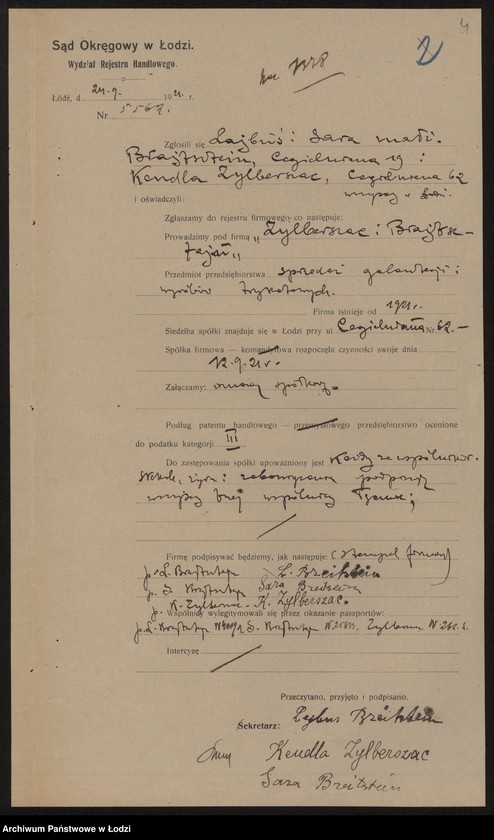 4
2
Sąd Okręgowy w Łodzi.
Wydział Rejestru Handlowego.
Łódź, d 24.9. 1921 r.
Nr. 5562.
Zgłosili się Lajbuś i Sara małż.
Brajtsztein, Cegielniana 19 i
Kendla Zylberszac, Cegielniana 62
i oświadczyli: wszyscy w Łodzi.
Zgłaszamy do rejestru firmowego co następuje:
Prowadzimy pod firmą „Zylberszac i Brajtsz-
tajn"
Przedmiot przedsiębiorstwa sprzedaż galanterji i
wyrobów trykotowych.
Firma istnieje od 1921 r.
Siedziba spółki znajduje się w Łodzi przy ul. Cegielniana Nr. 62.-
Spółka firmowa — komandytowa rozpoczęła czynności swoje dnia
12.9.21 r.
Załączamy: umowę spółkową
Podług patentu handlowego — przemysłowego przedsiębiorstwo ocenione
do podatku kategorji III
Do zastępowania spółki upoważniony jest Każdy ze wspólników.
Weksle, żyra i zobowiązania podpisują
wszyscy trzej wspólnicy
Firmę podpisywać będziemy, jak następuje: (stempel firmowy)
p. L. Brajtsztejn L. Breitstein
p. S. Brajtsztejn Sara Breitstein
p. K. Zylberszac K. Zylberszac.
Wspólnicy wylegitymowali się przez okazanie paszportów:
Intercyzę
Przeczytano, przyjęto i podpisano.
Lejbus Breitstein
Sekretarz:
Kendla Zylberszac
Sara Breitstein
Archiwum Państwowe w Łodzi